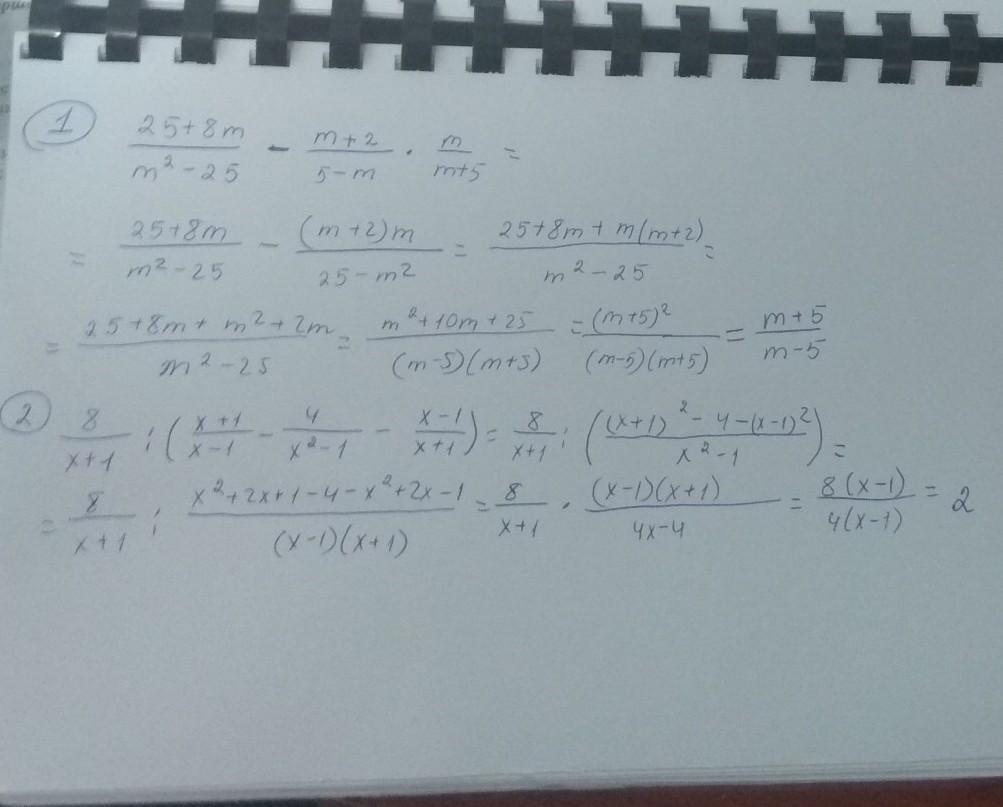 1 (25+8m)/(m²-25) - (m+2)/(5-m) · m/(m+5) =
= (25+8m)/(m²-25) - ((m+2)m)/(25-m²) = (25+8m+m(m+2))/(m²-25) =
= (25+8m+m²+2m)/(m²-25) = (m²+10m+25)/((m-5)(m+5)) = (m+5)²/((m-5)(m+5)) = (m+5)/(m-5)
2 8/(x+1) : ((x+1)/(x-1) - 4/(x²-1) - (x-1)/(x+1)) = 8/(x+1) : (((x+1)²-4-(x-1)²)/(x²-1)) =
= 8/(x+1) : (x²+2x+1-4-x²+2x-1)/((x-1)(x+1)) = 8/(x+1) · ((x-1)(x+1))/(4x-4) = (8(x-1))/(4(x-1)) = 2